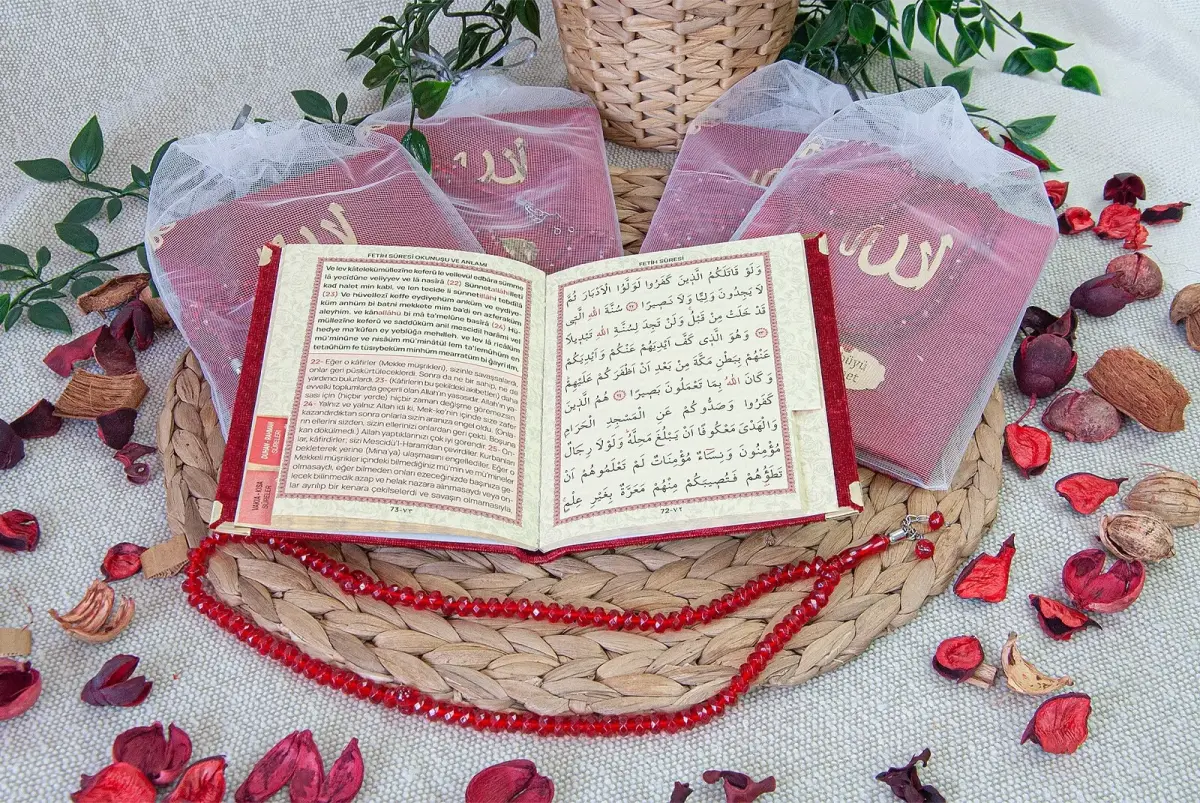 الله
الله
الله
büyü
et
FETİH SÛRESİ OKUNUŞU VE ANLAMI
Ve lev kâtelekümüllezîne keferû le velleyvül edbâra sümme
lâ yecidûne veliyyev ve lâ nasîrâ (22) Sünnetallâhilletî
kad halet min kabl, ve len tecide li sünnetillâhi tebdîlâ
(23) Ve hüvellezî keffe eydiyehüm anküm ve eydiye-
küm anhüm bi batni mekkete mim ba'di en azferaküm
aleyhim, ve kânallâhü bi mâ ta'melûne basîrâ (24) Hü-
müllezîne keferû ve saddûküm anil mescidil harâmi vel
hedye ma'kûfen ey yeblüğa mehılleh, ve lev lâ ricâlüm
mü'minûne ve nisâüm mü'minâtül lem ta'lemûhüm en
tetaûhüm fe tüsıybeküm minhüm mearratüm bi ğayri ılm,
22- Eğer o kâfirler (Mekke müşrikleri), sizinle savaşsalardı,
onlar geri püskürtüleceklerdi. Sonra da ne bir sahip, ne de
yardımcı bulurlardı. 23- (Kâfirlerin bu şekildeki akıbetleri) daha
evvelki toplumlarda geçerli olan Allah'ın yasasıdır. Allah'ın ya-
sası için (hiçbir yerde) hiçbir zaman değişme göremezsin.
24- Yalnız ve yalnız Allah idi ki, Mek-ke'nin içinde size zafer
kazandırdıktan sonra onlara sizin aranıza engel oldu. (Onla-
rın ellerini sizden, sizin ellerinizi onlardan geri çekti. Boşuna
kan dökülmedi.) Allah yaptıklarınızı çok iyi görendir. 25- On-
lar, kâfirdirler; sizi Mescidü'l-Haram'dan çevirdiler. Kurbanları
bekleterek yerine (Mina'ya) ulaşmasını engellediler. Eğer o
Mekkeli müşrikler içindeki bilmediğiniz mü'min ve mü'mineler
olmasaydı, eğer bilmeden onları ezeceğinizde başınıza ge-
lecek bilinmedik azap ve helak nazara alınmasaydı veya on-
lar ayrılıp bir kenara çekilselerdi ve savaşın olmamasıyla,
DUHAN - RAHMAN
SÛRELERİ
VAKIA - KISA
SÛRELER
73-٧٣
FETİH SÛRESİ
وَلَوْ قَاتَلَكُمُ الَّذِينَ كَفَرُوا لَوَلَّوُا الْاَدْبَارَ ثُمَّ
لَا يَجِدُونَ وَلِيًّا وَلَا نَصِيرًا ﴿٢٢﴾ سُنَّةَ اللهِ الَّتِي
قَدْ خَلَتْ مِنْ قَبْلُ وَلَنْ تَجِدَ لِسُنَّةِ اللهِ تَبْدِيلًا
﴿٢٣﴾ وَهُوَ الَّذِي كَفَّ اَيْدِيَهُمْ عَنْكُمْ وَاَيْدِيَكُمْ
عَنْهُمْ بِبَطْنِ مَكَّةَ مِنْ بَعْدِ اَنْ اَظْفَرَكُمْ عَلَيْهِمْ
وَكَانَ اللهُ بِمَا تَعْمَلُونَ بَصِيرًا ﴿٢٤﴾ هُمُ الَّذِينَ
كَفَرُوا وَصَدُّوكُمْ عَنِ الْمَسْجِدِ الْحَرَامِ
وَالْهَدْيَ مَعْكُوفًا اَنْ يَبْلُغَ مَحِلَّهُ وَلَوْلَا رِجَالٌ
مُؤْمِنُونَ وَنِسَاءٌ مُؤْمِنَاتٌ لَمْ تَعْلَمُوهُمْ اَنْ
تَطَؤُهُمْ فَتُصِيبَكُمْ مِنْهُمْ مَعَرَّةٌ بِغَيْرِ عِلْمٍ
72-٧٢